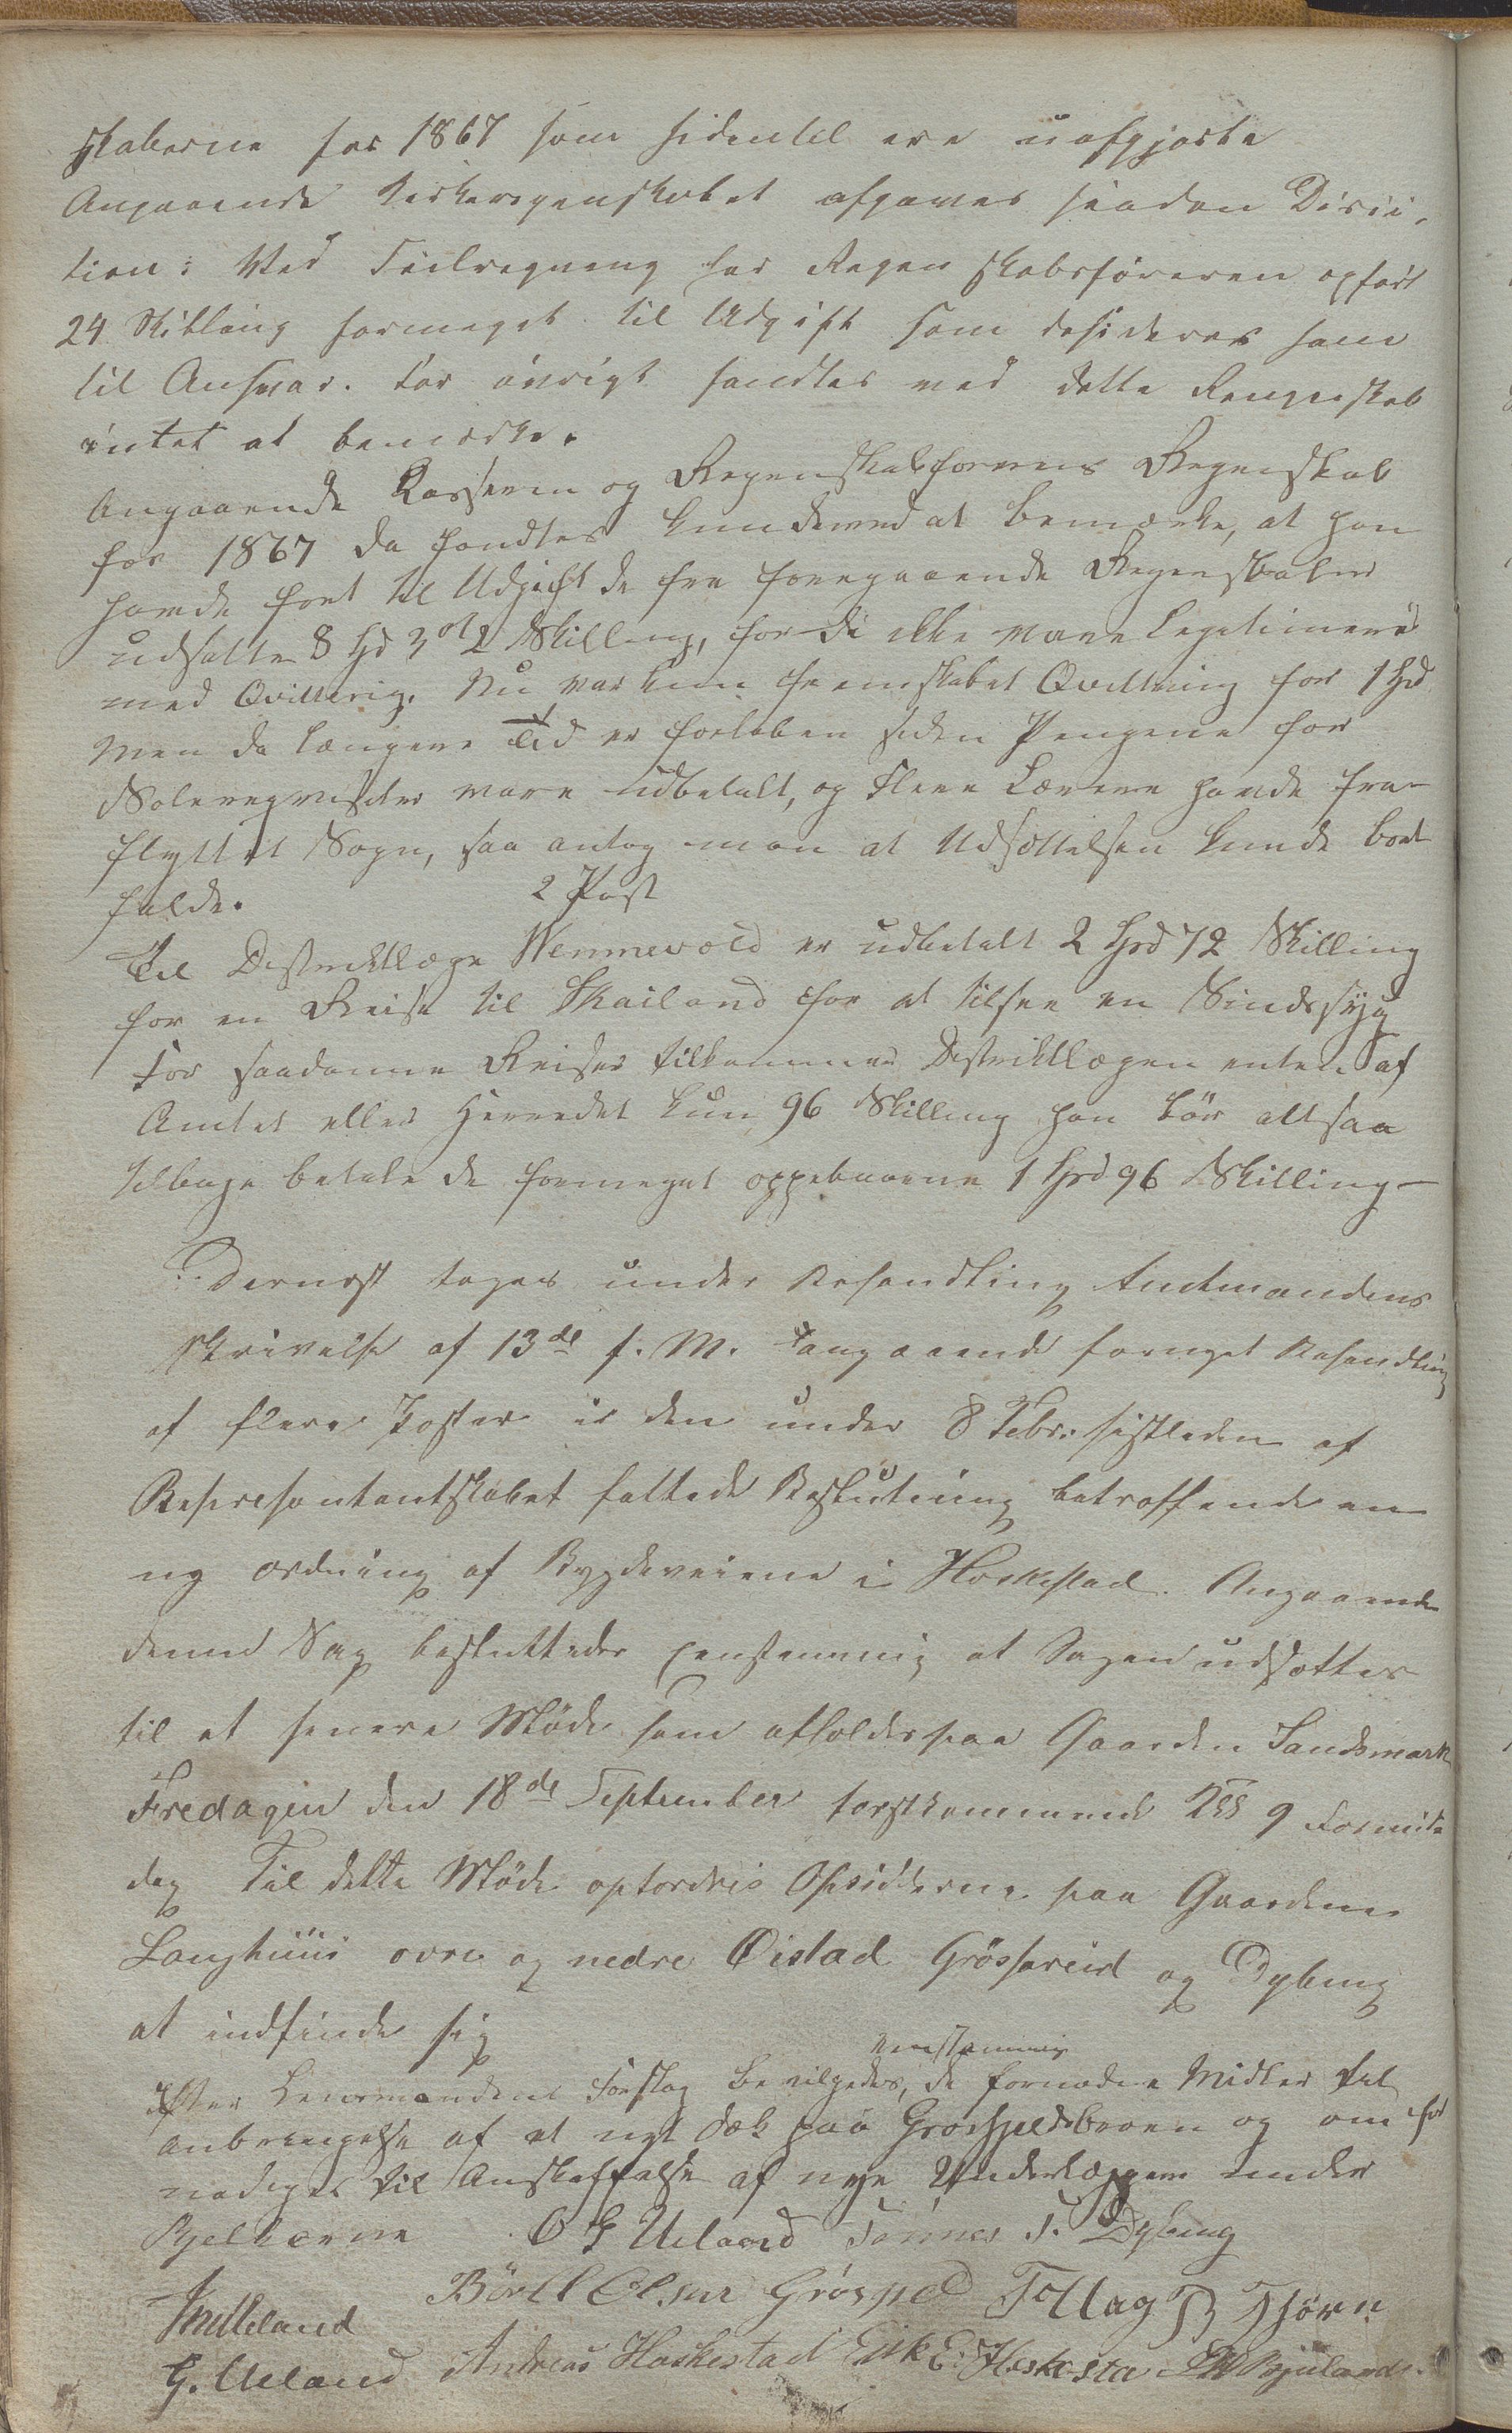 skaberne for 1867 som sidentil ere uafgjorte
Angaaende Kirkeregenskabet afgaves saadan Decis-
tion: Ved Feilregning har Regenskabsføreren opført
24 Skilling formeget til Udgift som desideres ham
til Ansvar. For øvrigt fandtes ved dette Rengenskab
intet at bemærke.
Angaaende Kasseren og Regenskabsførerens Regenskab
for 1867 da fandtes kun dermed at bemærke, at han
havde ført til Udgift de fra foregaaende Regenskaber
udsatte 8 Spd 3 ort 2 Skilling, fordi ikke vare Legitimeret
med Qvittering. Nu var kun fremskabet Qvittering for 1 Spd
Men da længere Tid er forløben siden Pengene for
Skolereqvisiter vare udbetalt, og Flere Lærere havde fra-
flyttet Sogn, saa antog man at Udsættelsen kunde bort
falde.
2 Post
Til Distriktlæge Wennevold er udbetalt 2 Spd 72 Skilling
for en Reise til Skailand for at tilsee en Sindssyg
For saadanne Reiser tilkommer Distriktlægen enten af
Amtet eller Herredet kun 96 Skilling han bør altsaa
tilbage betale de formeget oppebaarne 1 Spd 96 Skilling –
Dernæst toges under Behandling Amtmandens
Skrivelse af 13de f. M. angaaende fornyet Behandling
af flere Poster i den under 8 Febr. sistleden af
Representantskabet fattede Beslutning betræffende en
ny ordning af Bygdeveiene i Heskestad. Angaaende
denne Sag besluttedes eenstemmig at Sagen udsættes
til et senere Møde som afholdes paa Gaarden Sandsmark
Fredagen den 18de September førstkommende Kl 9 Formid
dag Til dette Møde opfordres Opsidderne paa Gaardene
Langhuus ovre og nedre Øistad Grøsfareid og Dybing
at indfinde sig
eenstemmig
Efter Lensmandens Forslag bevilgedes, de fornødne Midler til
Anbringelse af et nyt Dæk paa Grosfjeldsbroen og om for
nødiget til Anskaffelse af nye Underlægger under
Bjelkerne O G Ueland Tønnes T. Dybing
Børell Olsen Grøsfjed T Ollag B Tjørn
Mideland
G. Ueland Andreas Heskestad Eirik E. Heskesta